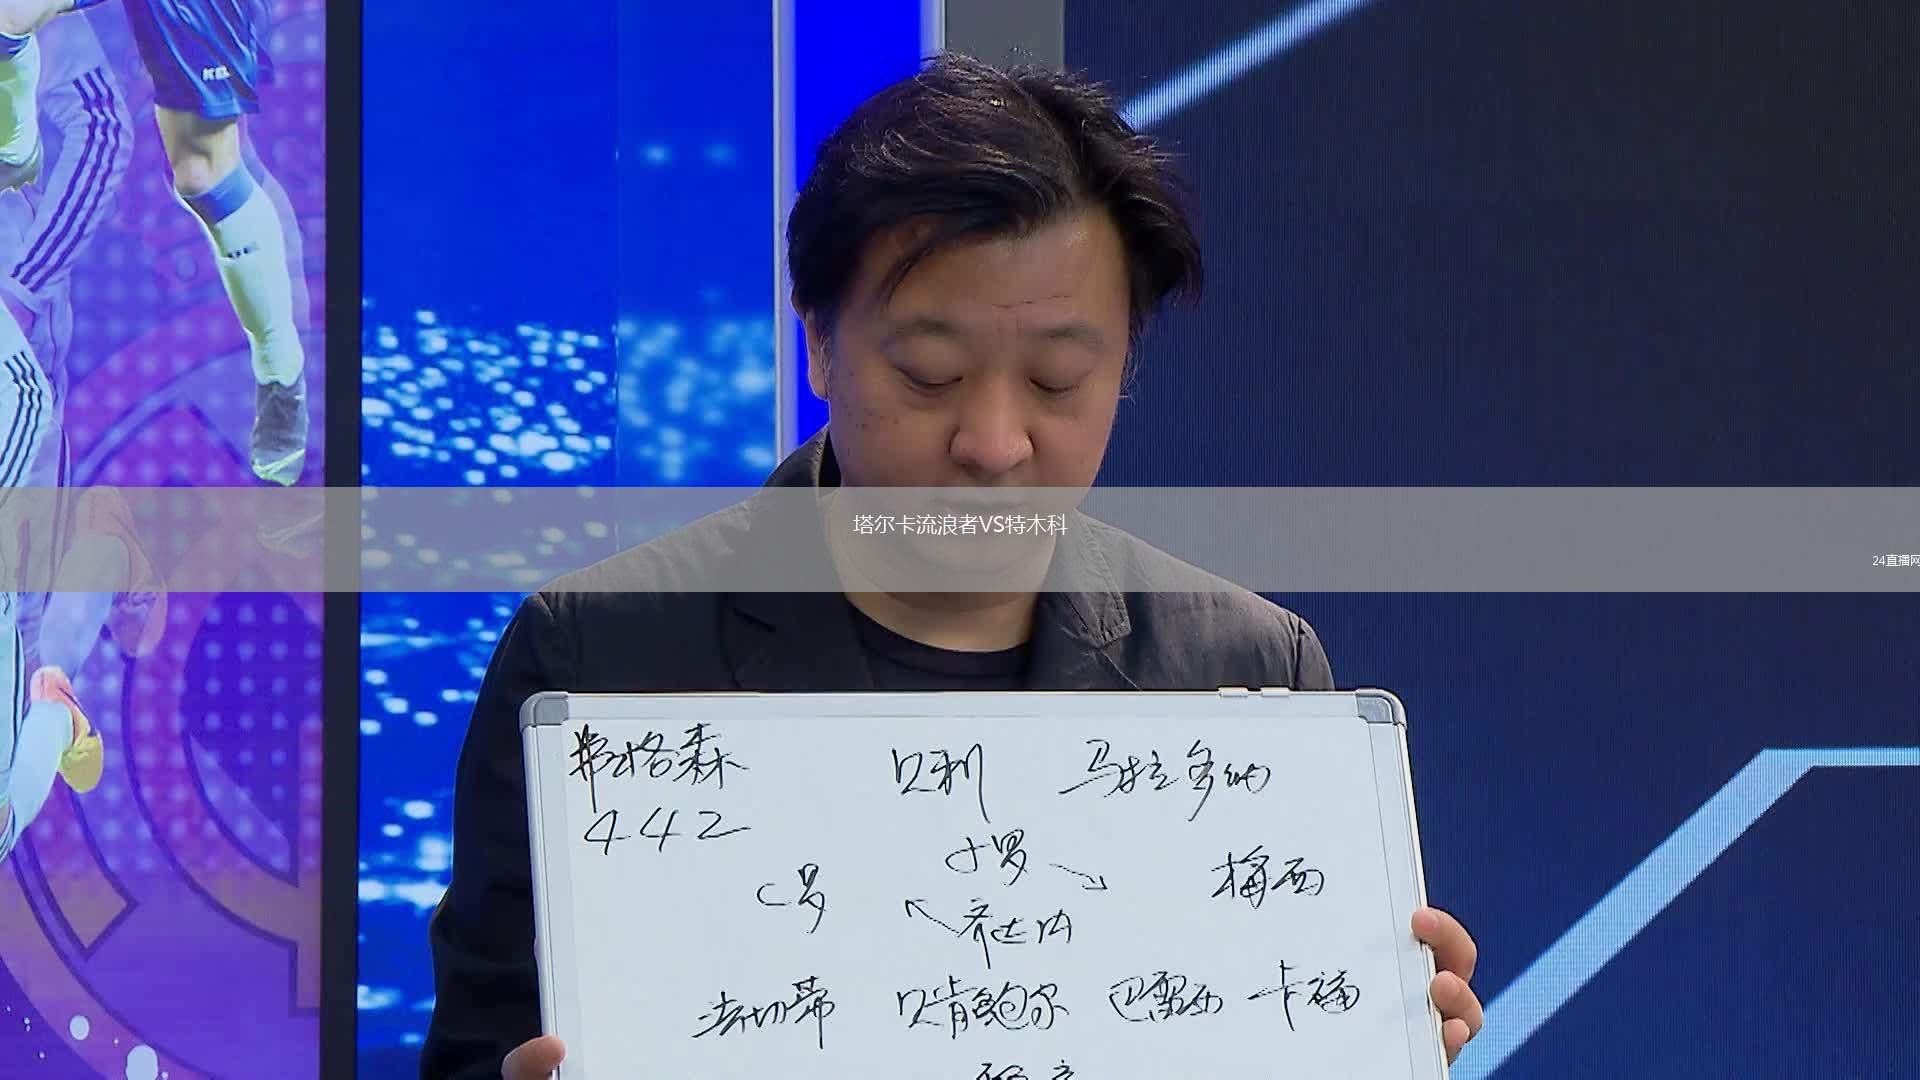 KEL
塔尔卡流浪者VS特木科
24直播网
弗格森 贝利 马拉多纳
442
小罗
C罗 梅西
齐达内
法切蒂 贝肯鲍尔 巴雷西 卡福